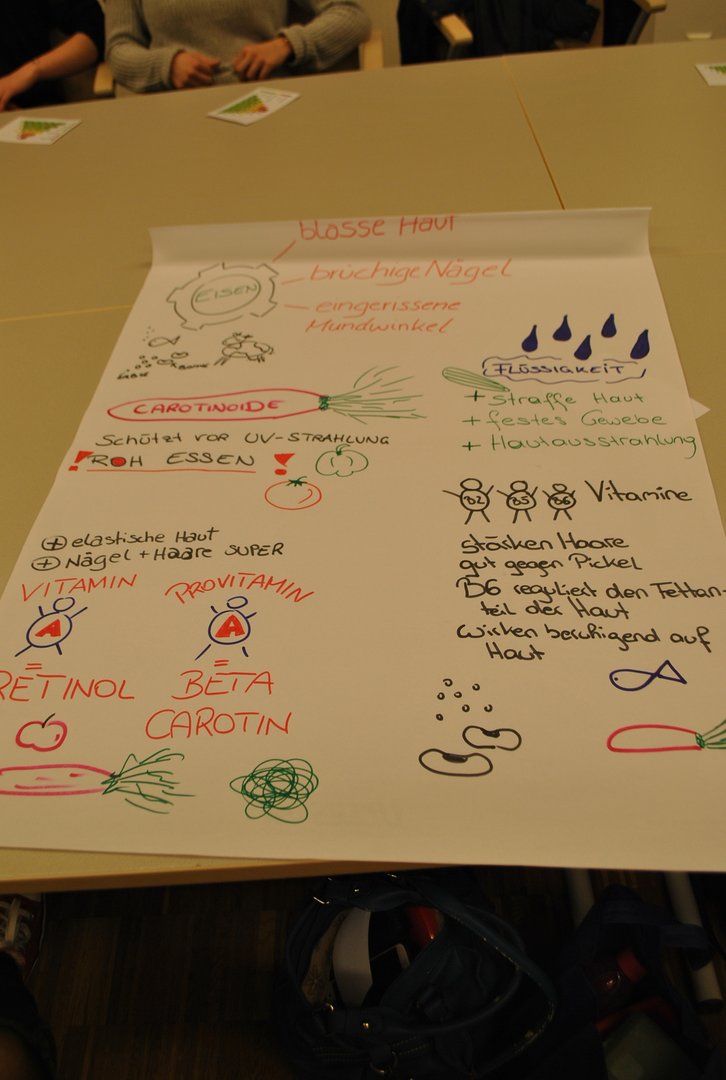 blasse Haut
brüchige Nägel
EISEN
eingerissene
Mundwinkel
CAROTINOIDE
SCHÜTZT VOR UV-STRAHLUNG
! ROH ESSEN !
+ elastische Haut
+ Nägel + Haare SUPER
VITAMIN
A
=
RETINOL
PROVITAMIN
A
=
BETA
CAROTIN
FLÜSSIGKEIT
+ straffe Haut
+ festes Gewebe
+ Hautausstrahlung
B2 B5 B6 Vitamine
stärken Haare
gut gegen Pickel
B6 reguliert den Fettan-
teil der Haut
wirken beruhigend auf
Haut